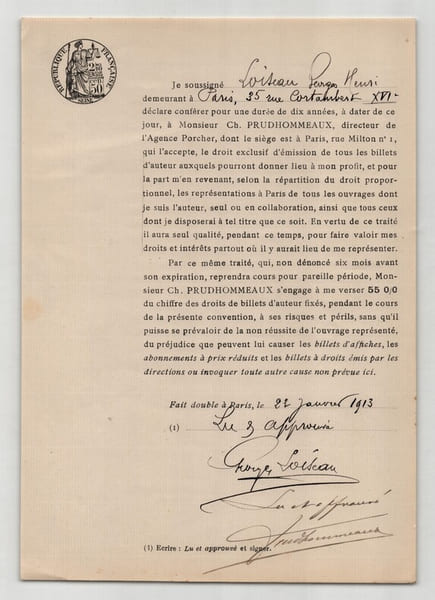 RÉPUBLIQUE FRANÇAISE
2 FR
50
SEINE
Je soussigné Loiseau Georges Henri
demeurant à Paris, 35 rue Cortambert XVIe
déclare conférer pour une durée de dix années, à dater de ce
jour, à Monsieur Ch. PRUDHOMMEAUX, directeur de
l'Agence Porcher, dont le siège est à Paris, rue Milton n° 1,
qui l'accepte, le droit exclusif d'émission de tous les billets
d'auteur auxquels pourront donner lieu à mon profit, et pour
la part m'en revenant, selon la répartition du droit propor-
tionnel, les représentations à Paris de tous les ouvrages dont
je suis l'auteur, seul ou en collaboration, ainsi que tous ceux
dont je disposerai à tel titre que ce soit. En vertu de ce traité
il aura seul qualité, pendant ce temps, pour faire valoir mes
droits et intérêts partout où il y aurait lieu de me représenter.
Par ce même traité, qui, non dénoncé six mois avant
son expiration, reprendra cours pour pareille période, Mon-
sieur Ch. PRUDHOMMEAUX s'engage à me verser 55 0/0
du chiffre des droits de billets d'auteur fixés, pendant le cours
de la présente convention, à ses risques et périls, sans qu'il
puisse se prévaloir de la non réussite de l'ouvrage représenté,
du préjudice que peuvent lui causer les billets d'affiches, les
abonnements à prix réduits et les billets à droits émis par les
directions ou invoquer toute autre cause non prévue ici.
Fait double à Paris, le 22 Janvier 1913
(1) Lu & approuvé
Georges Loiseau
Lu et approuvé
Prudhommeaux
(1) Ecrire : Lu et approuvé et signer.